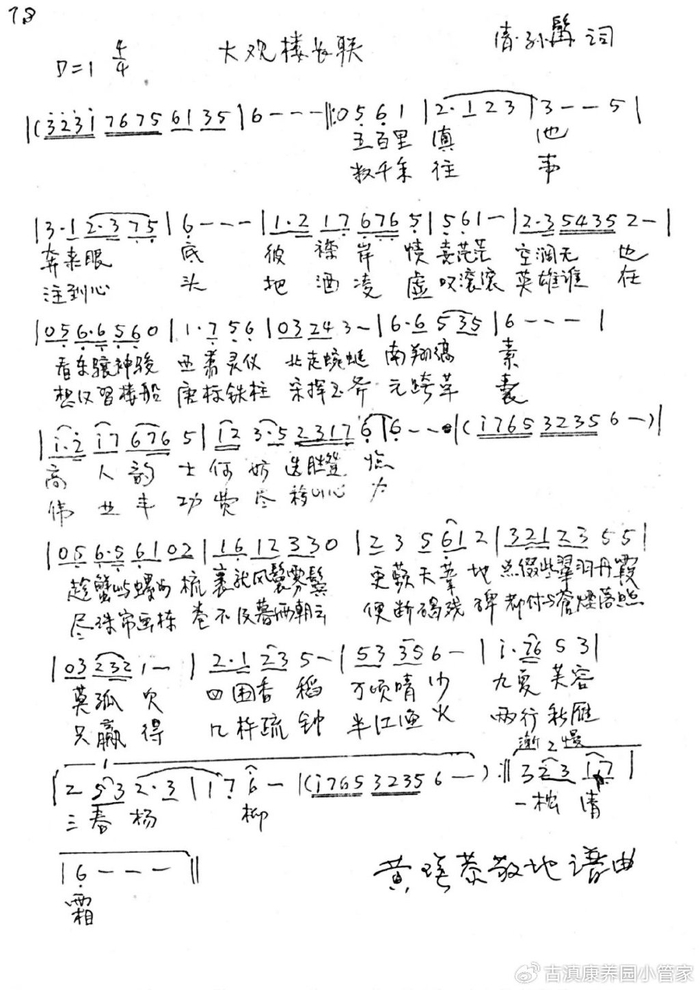 78
D=1 4/4 大观楼长联 清·孙髯 词
|(3231 7675 61 35 | 6 - - - ‖: 0 5 6 1 | 2·1 2 3 | 3 - - 5 |
五百里 滇 池
数千年 往 事
| 3·1 2·3 7 5 | 6 - - - | 1·2 1 7 676 5 | 5 6 1 - | 2·3 5435 2 - |
奔来眼 底 披 襟 岸 帻 喜茫茫 空阔无 边
注到心 头 把 酒 凌 虚 叹滚滚 英雄谁 在
| 05 6·6 5 6 0 | 1·7 5 6 | 03 24 3 - | 6·6 5 35 | 6 - - - |
看东骧神骏 西翥灵仪 北走蜿蜒 南翔缟 素
想汉习楼船 唐标铁柱 宋挥玉斧 元跨革 囊
| 1·2 1 7 676 5 | 12 3·5 2317 6 | 6 - - - | (1765 3235 6 - -) |
高 人 韵 士 何 妨 选胜登 临
伟 业 丰 功 费 尽 移山心 力
| 05 6·5 61 02 | 16 12 33 0 | 2 3 5 61 2 | 321 23 5 5 |
趁蟹屿螺洲 梳 裹就风鬟雾鬓 更蘋天苇 地 点缀些翠羽丹霞
尽珠帘画栋 卷 不及暮雨朝云 便断碣残 碑 都付与苍烟落照
| 03 232 1 - | 2·1 23 5 - | 53 35 6 - | 1·76 5 3 |
莫孤 负 四围香 稻 万顷晴 沙 九夏 芙容
只赢 得 几杵疏 钟 半江渔 火 两行 秋雁
渐慢
| 2 53 2·3 | 1 7 6 - | (1765 3235 6 - -) :‖ 3 23 17 |
三春 杨 柳 一枕 清
| 6 - - - ‖
霜
黄瑶恭敬地谱曲
古滇康养园小管家